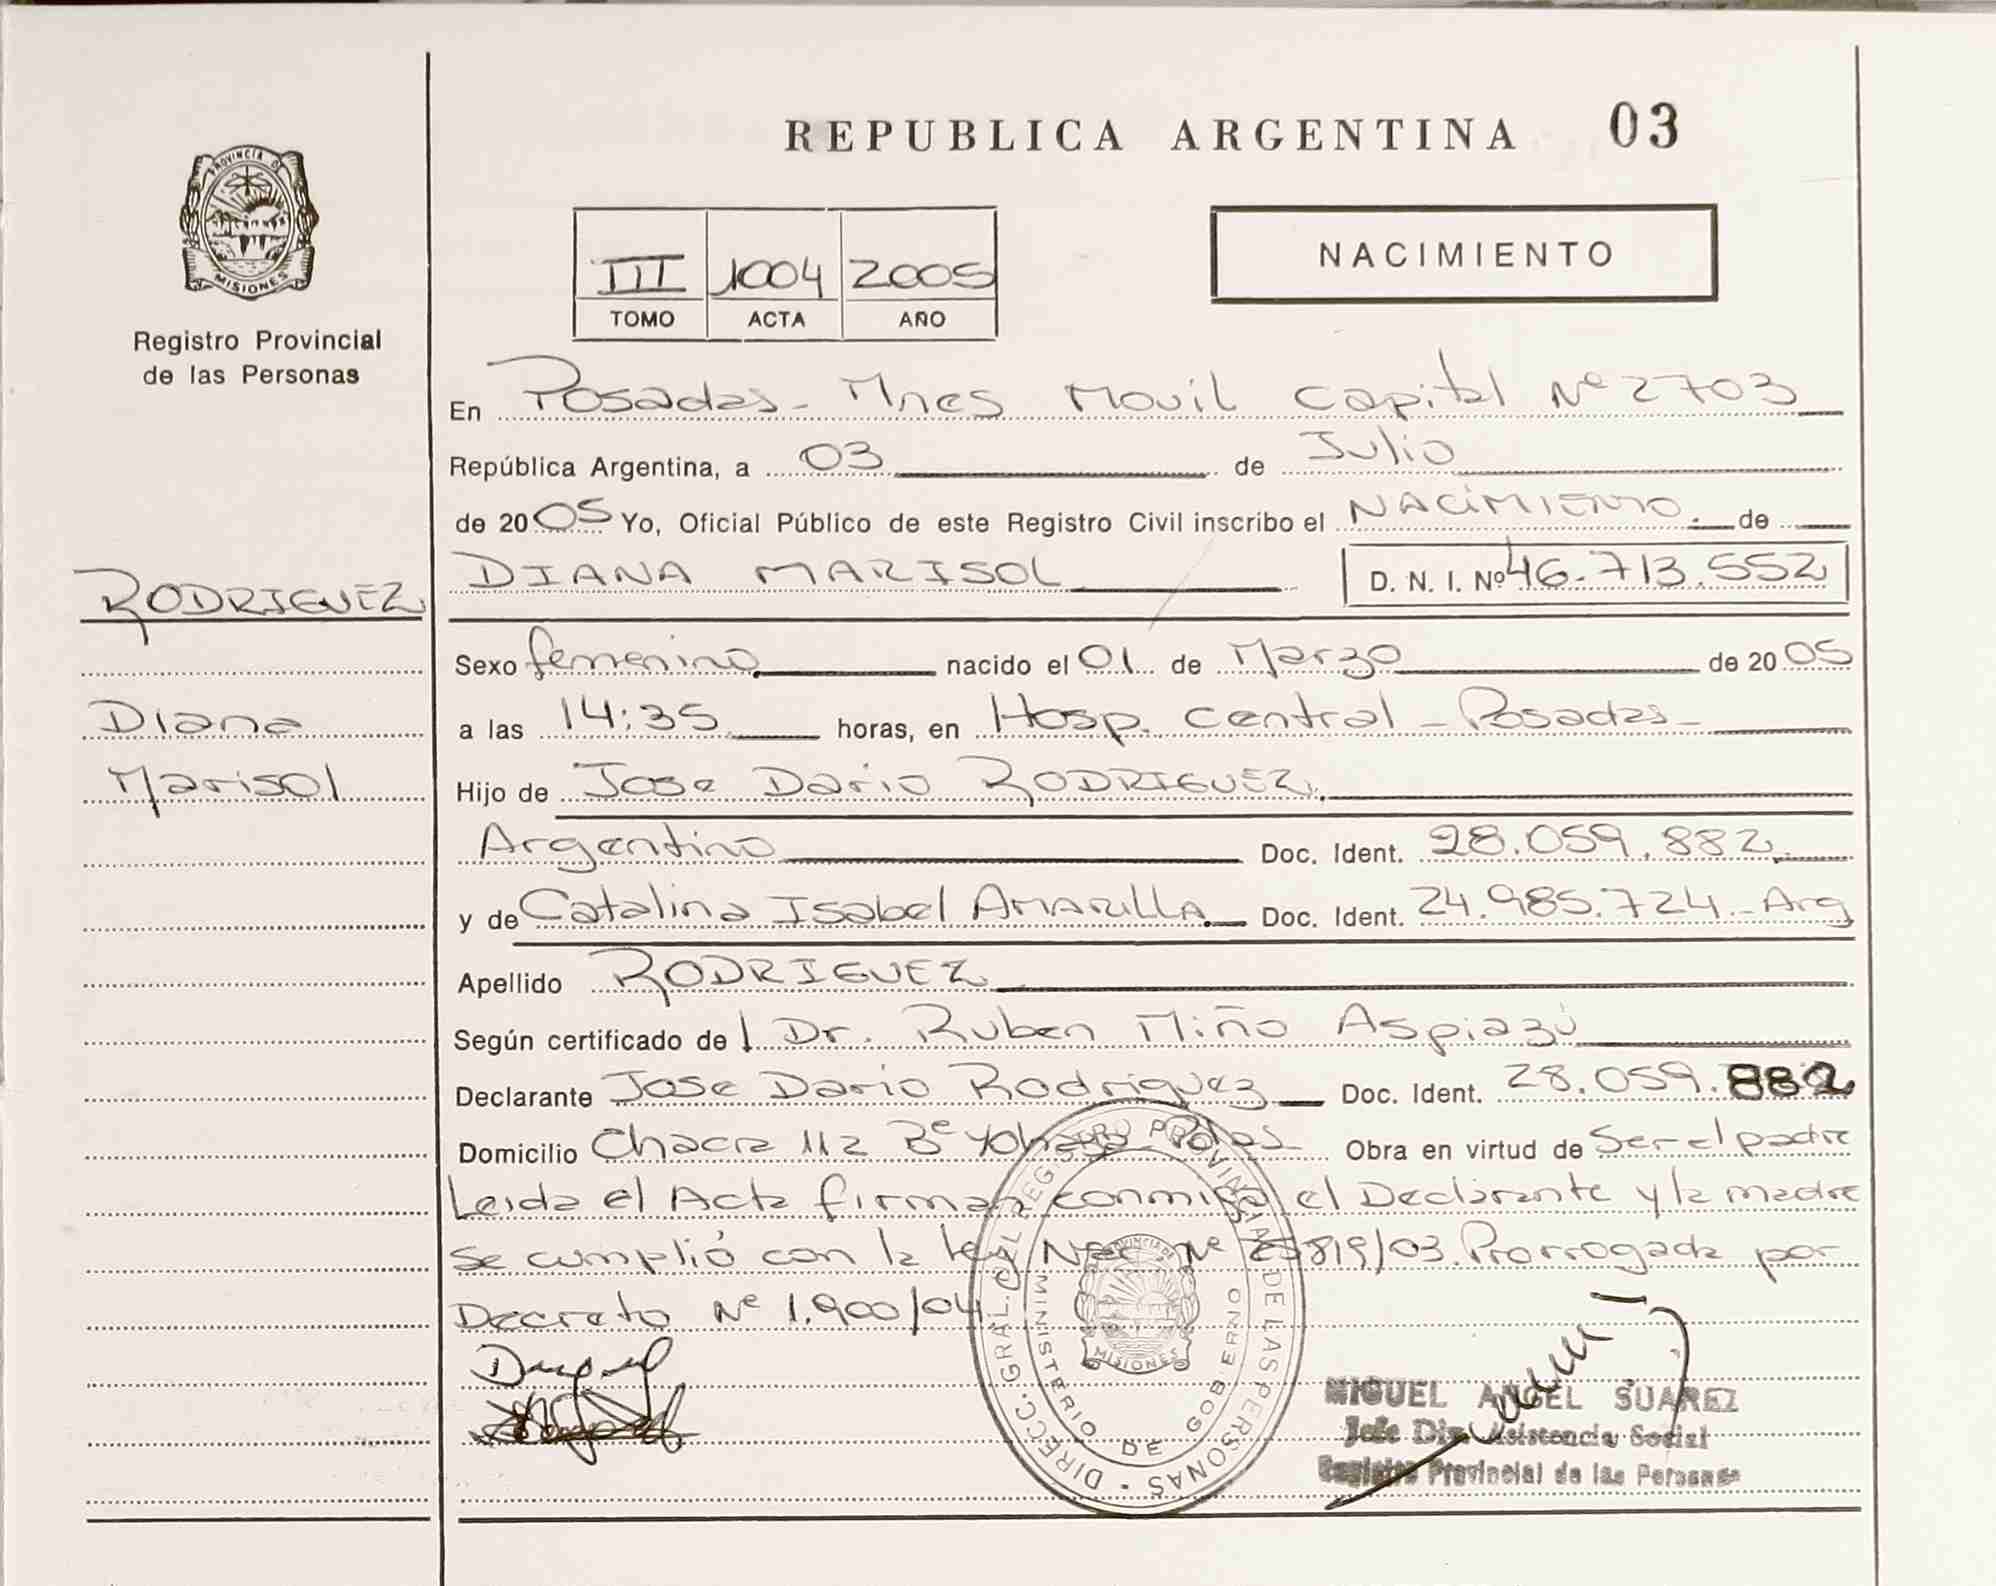 REPUBLICA ARGENTINA 03
PROVINCIA DE MISIONES
Registro Provincial
de las Personas
III 1004 2005
TOMO ACTA AÑO
NACIMIENTO
En Posadas - Mnes Movil Capital Nº 2703
República Argentina, a 03 de Julio
de 2005 Yo, Oficial Público de este Registro Civil inscribo el NACIMIENTO. de
DIANA MARISOL D. N. I. Nº 46.713.552
RODRIGUEZ
Diana
Marisol
Sexo femenino nacido el 01 de Marzo de 2005
a las 14:35 horas, en Hosp. Central - Posadas -
Hijo de Jose Dario RODRIGUEZ.
Argentino Doc. Ident. 28.059.882
y de Catalina Isabel AMARILLA. Doc. Ident. 24.985.724 - Arg
Apellido RODRIGUEZ
Según certificado de l Dr. Ruben Miño Aspiazú
Declarante Jose Dario Rodriguez Doc. Ident. 28.059.882
Domicilio Chacra 112 Bº Yohasa Pdas Obra en virtud de Ser el padre
Leida el Acta firman conmigo el Declarante y la madre
Se cumplió con la ley Nac Nº 25819/03. Prorrogada por
Decreto Nº 1.900/04
DIRECC. GRAL. DEL REGISTRO PROVINCIAL DE LAS PERSONAS
MINISTERIO DE GOBIERNO
PROVINCIA DE MISIONES
MIGUEL ANGEL SUAREZ
Jefe Dig. Asistencia Social
Registro Provincial de las Personas